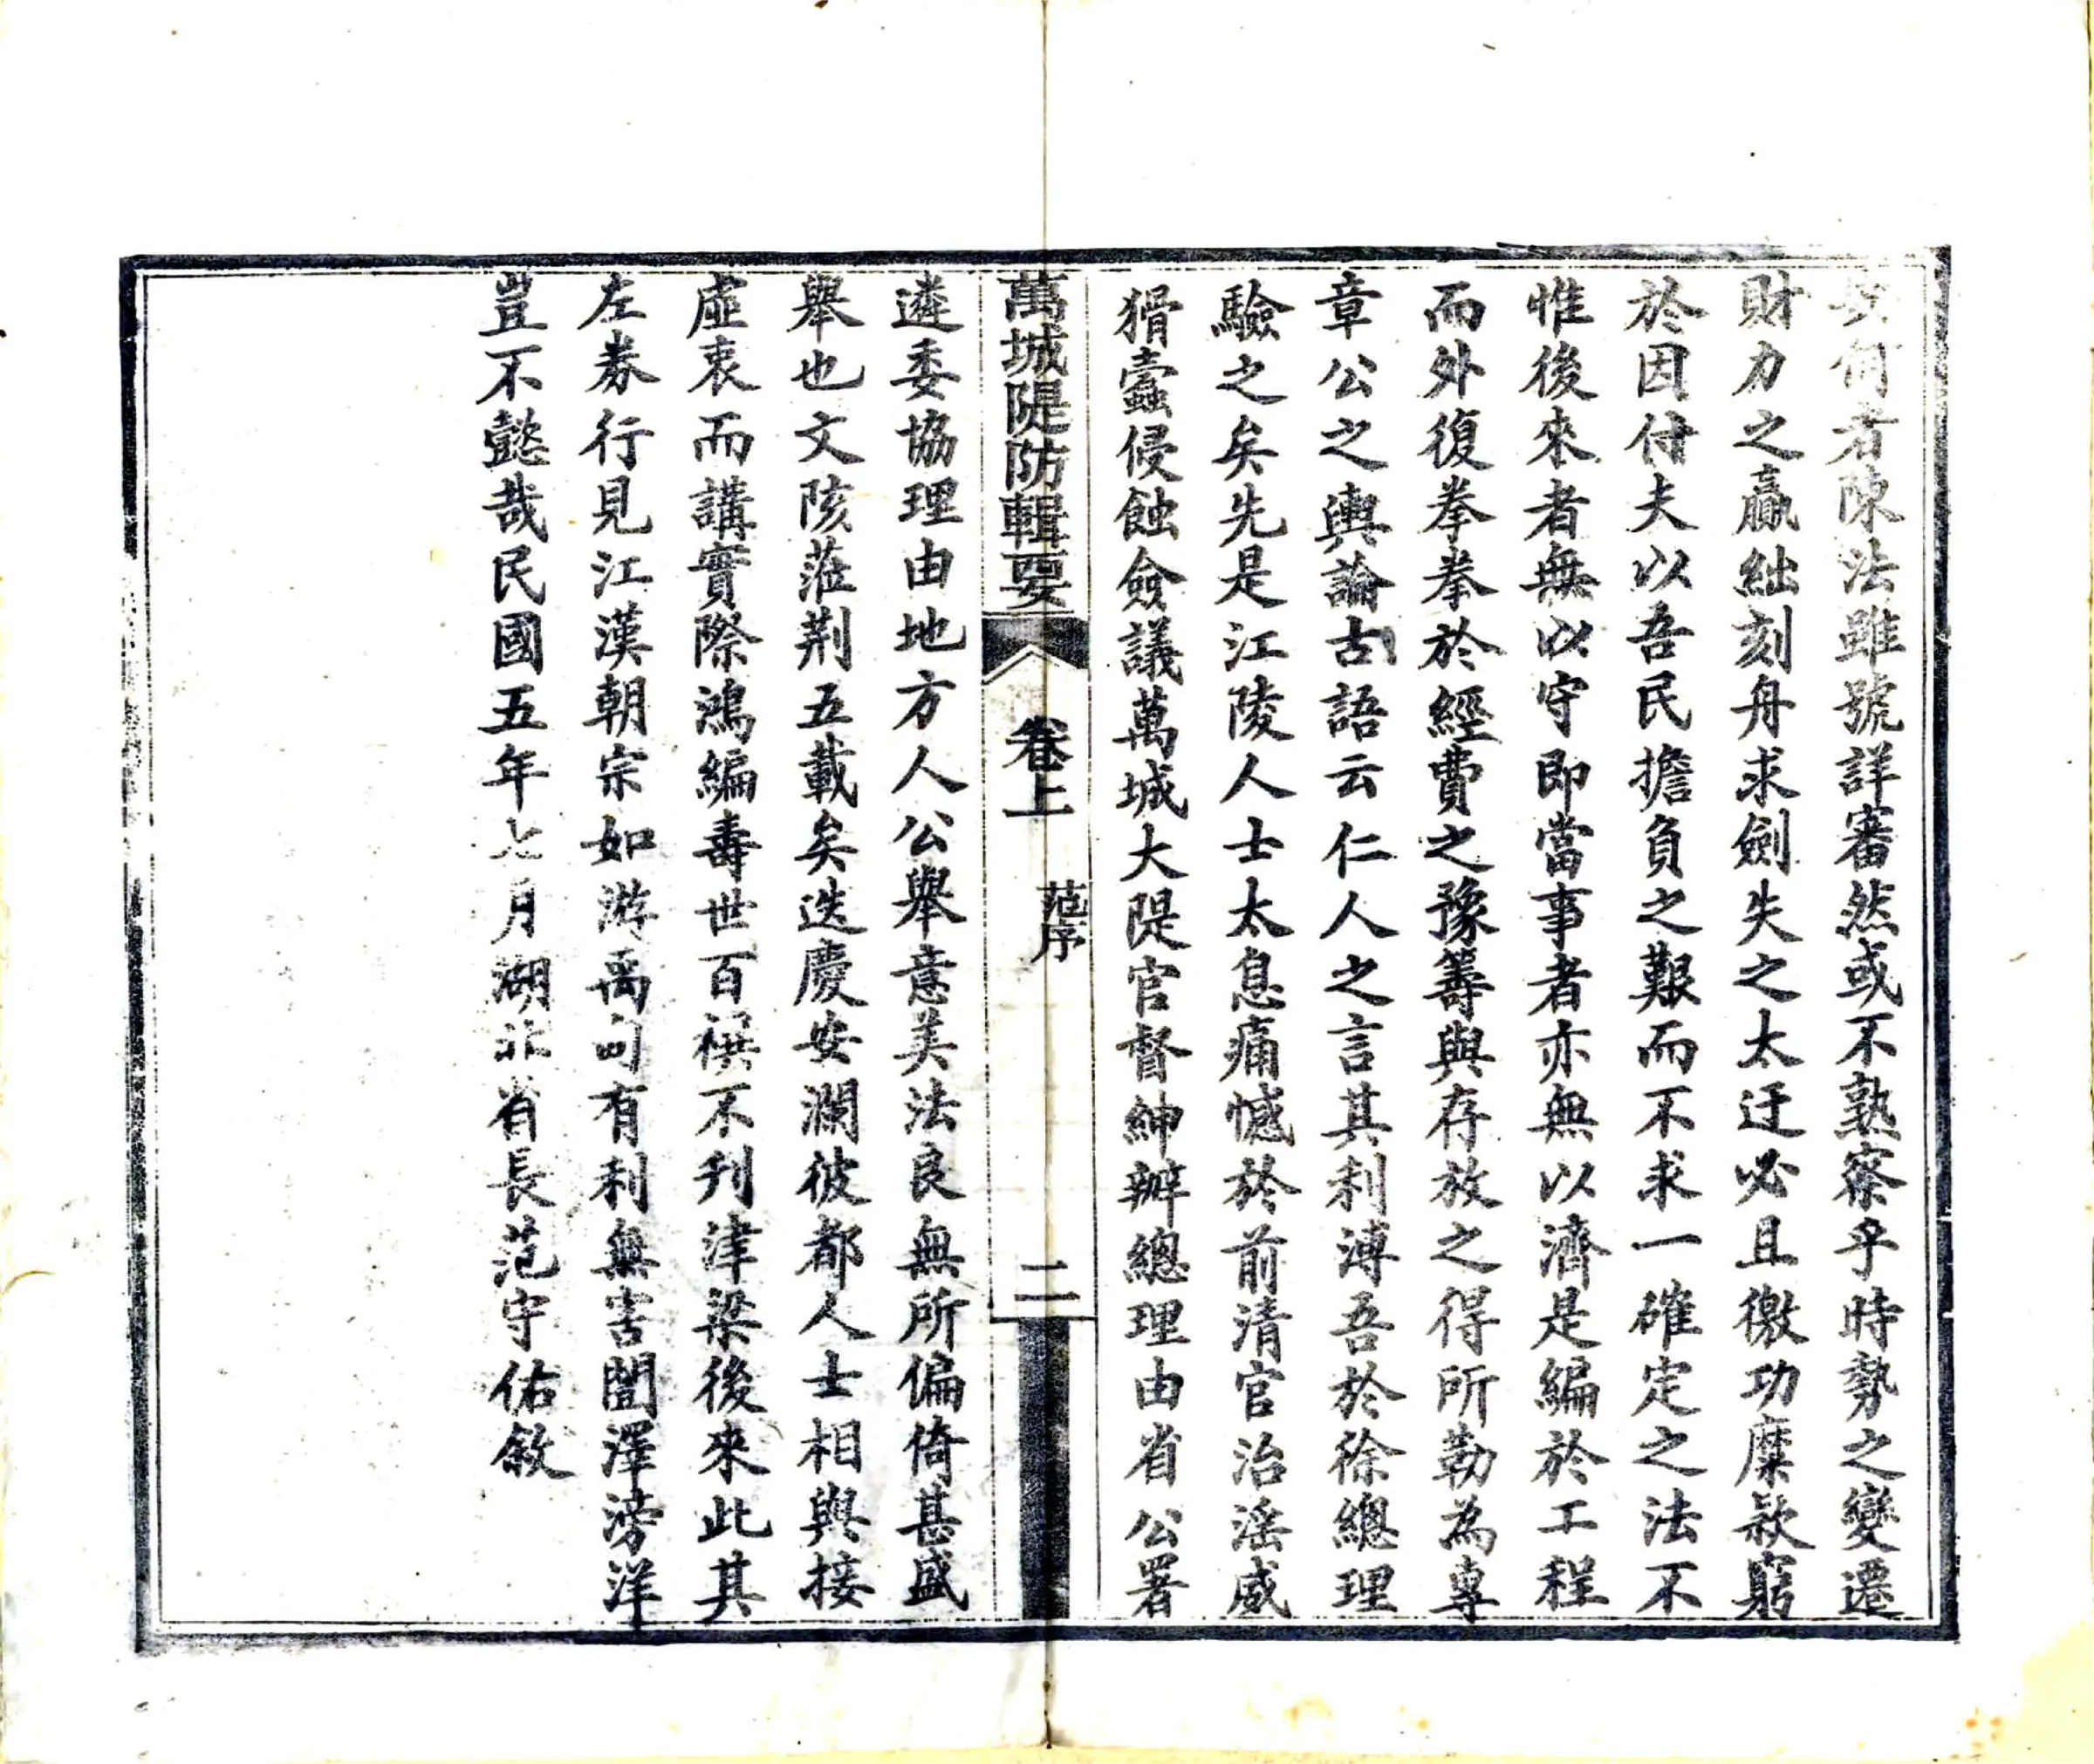 何者陳法雖號詳審然或不熟察乎時勢之變遷
財力之贏絀刻舟求劍失之太迂必且徼功糜款窮
於因付夫以吾民擔負之艱而不求一確定之法不
惟後來者無以守即當事者亦無以濟是編於工程
而外復拳拳於經費之豫籌與存放之得所勒為專
章公之輿論古語云仁人之言其利溥吾於徐總理
驗之矣先是江陵人士太息痛憾於前清官治淫威
猾蠹侵蝕僉議萬城大隄官督紳辦總理由省公署
萬城隄防輯要
卷上
范序
二
遴委協理由地方人公舉意美法良無所偏倚甚盛
舉也文陔蒞荆五載矣迭慶安瀾彼都人士相與接
虛衷而講實際鴻編壽世百禩不刊津梁後來此其
左券行見江漢朝宗如游禹甸有利無害闓澤滂洋
豈不懿哉民國五年七月湖北省長范守佑敘